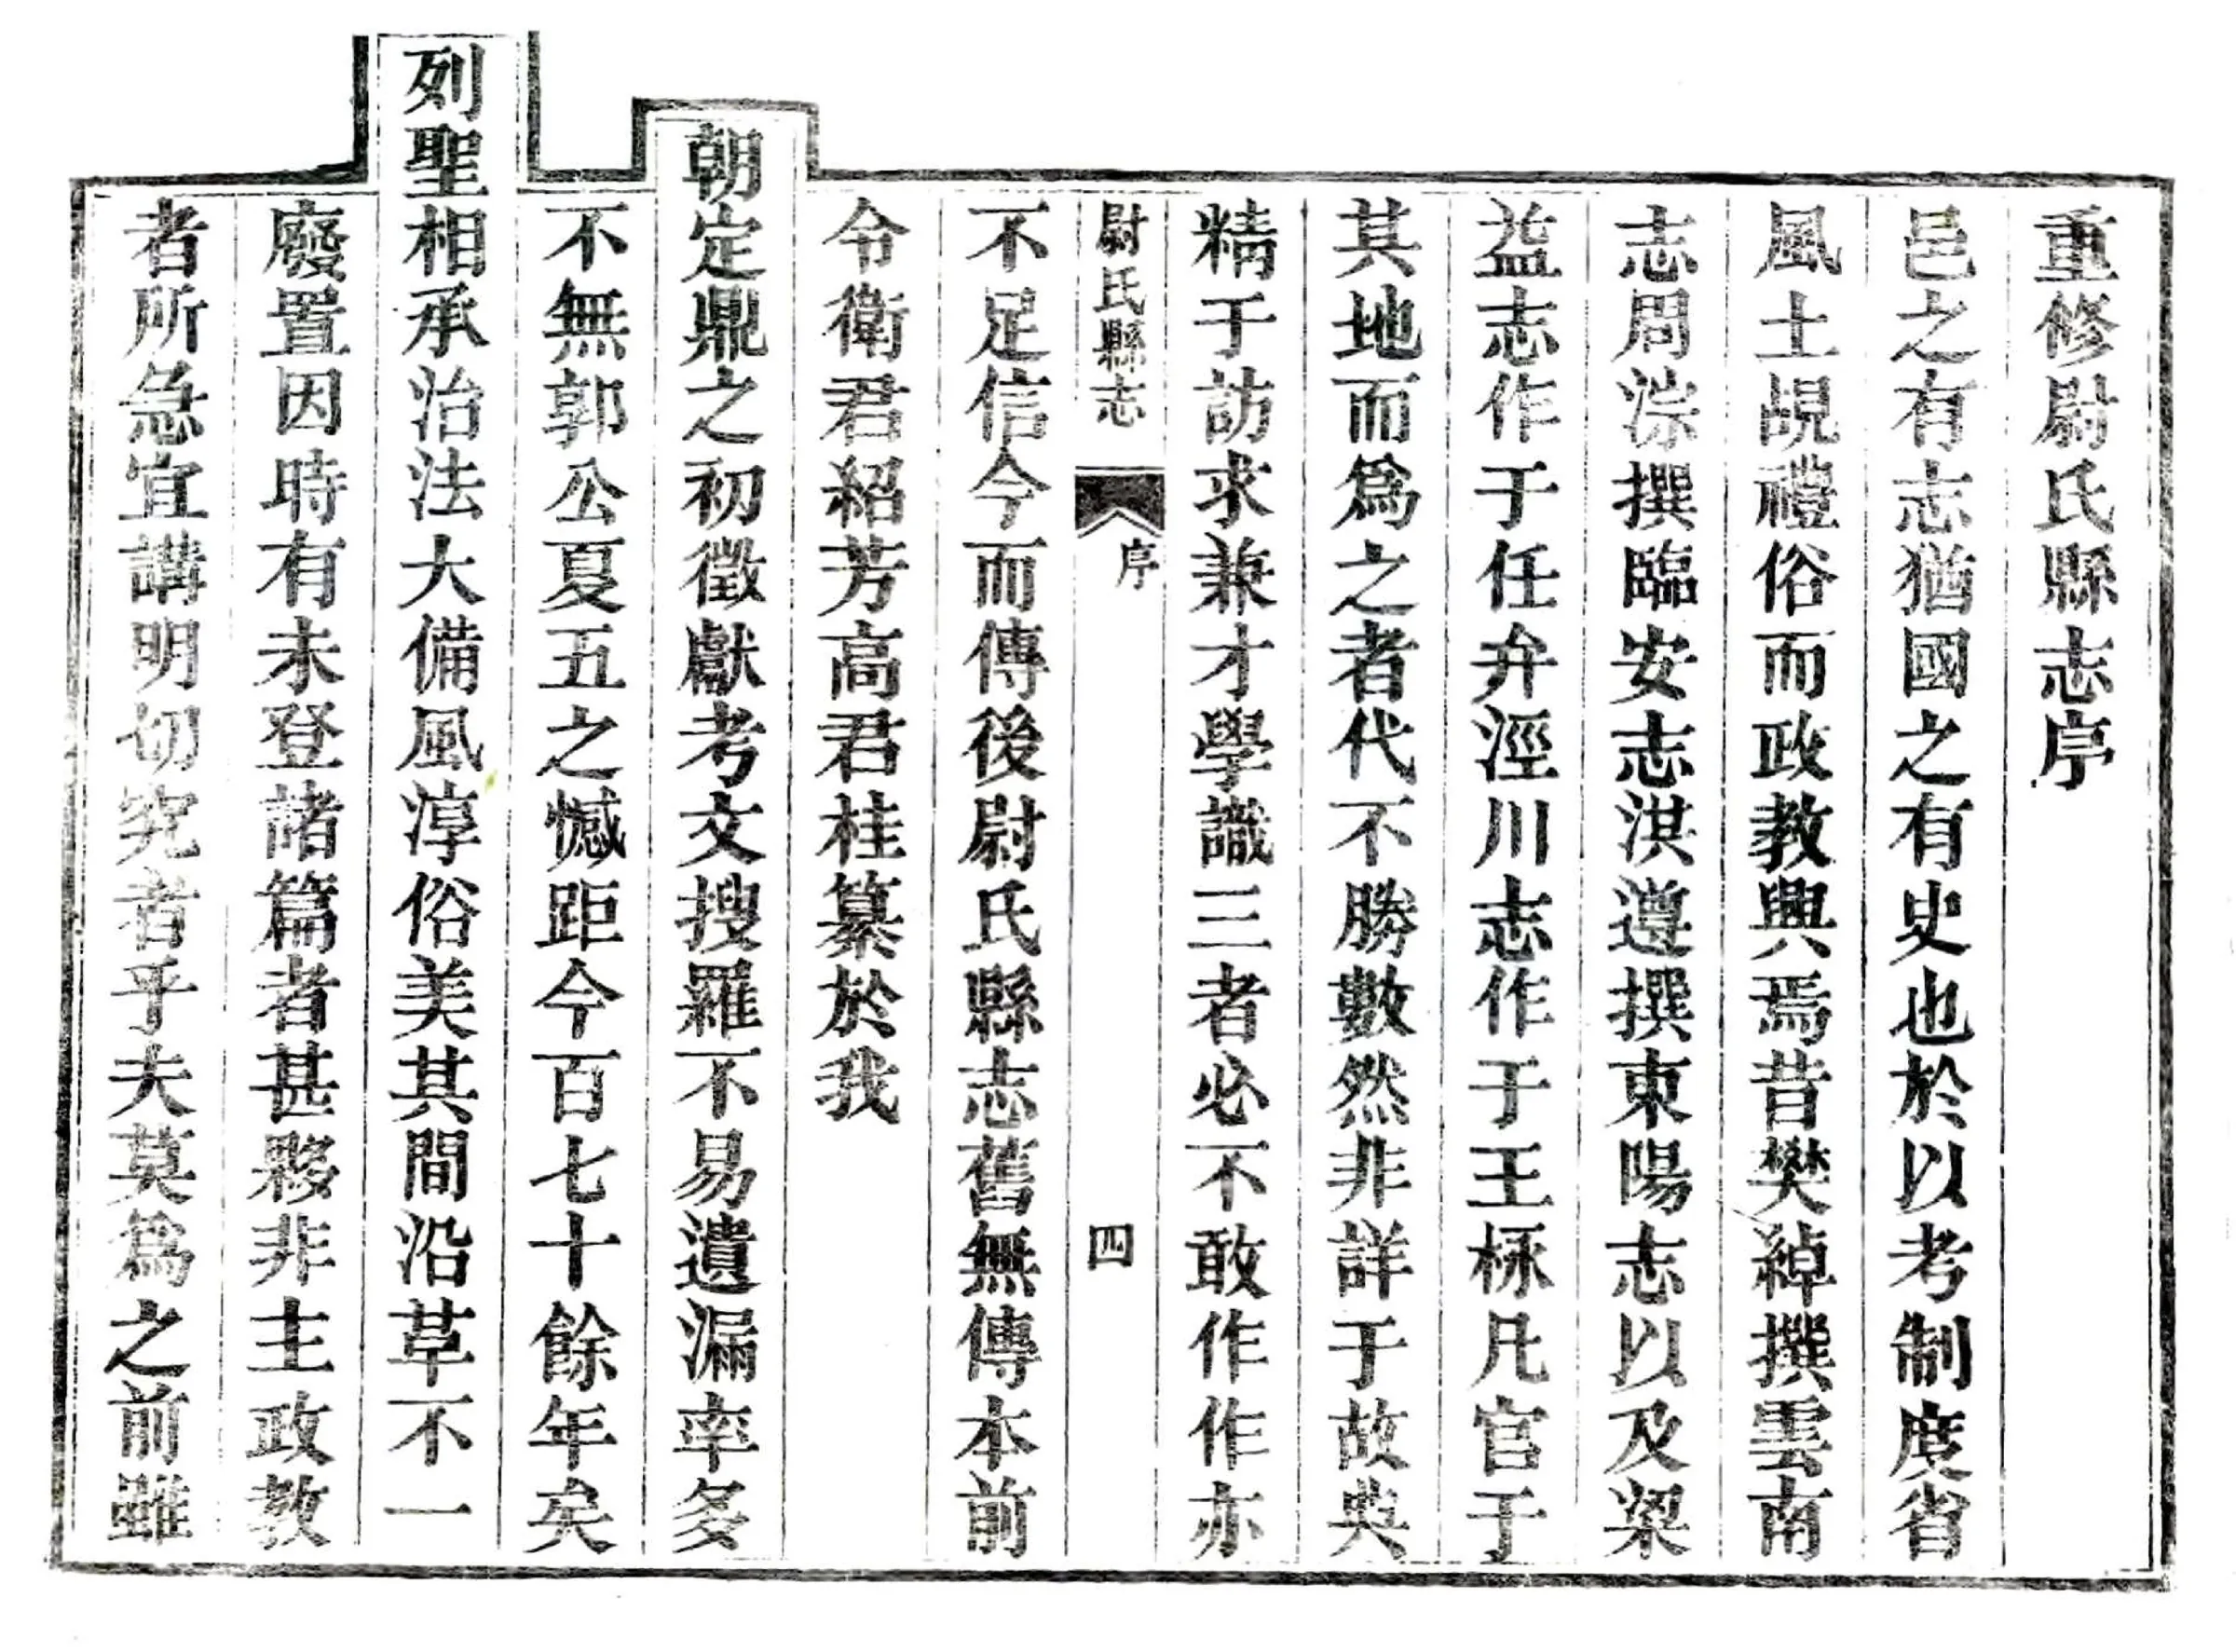 重修尉氏縣志序
邑之有志猶國之有史也於以考制度省
風土覘禮俗而政教興焉昔樊綽撰雲南
志周淙撰臨安志淇遵撰東陽志以及梁
益志作于任弁涇川志作于王栐凡官于
其地而爲之者代不勝數然非詳于故典
精于訪求兼才學識三者必不敢作作亦
尉氏縣志
序
四
不足信今而傳後尉氏縣志舊無傳本前
令衛君紹芳高君桂纂於我
朝定鼎之初徵獻考文搜羅不易遺漏率多
不無郭公夏五之憾距今百七十餘年矣
列聖相承治法大備風淳俗美其間沿革不一
廢置因時有未登諸篇者甚夥非主政教
者所急宜講明切究者乎夫莫爲之前雖